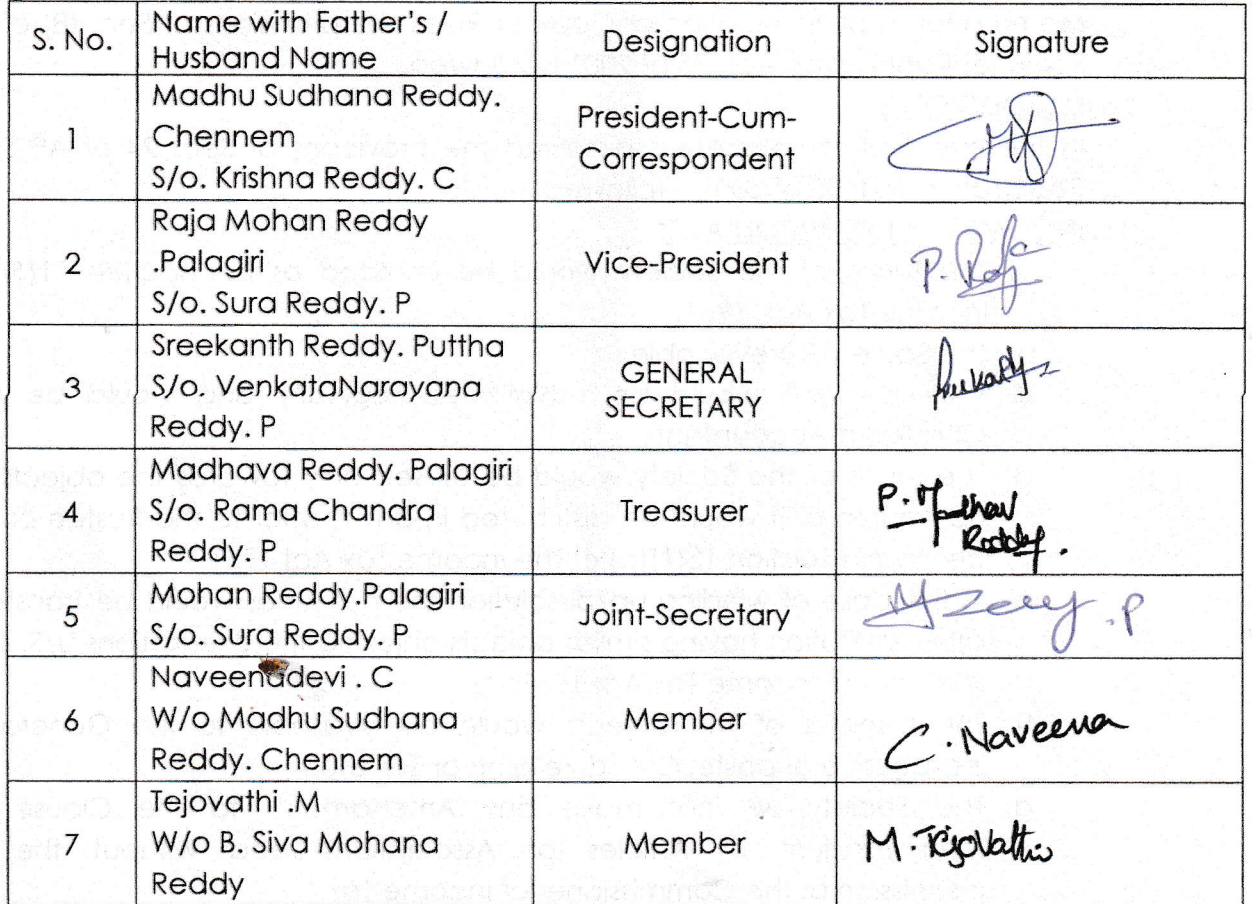 S. No.
Name with Father's /
Husband Name
Designation
Signature
1
Madhu Sudhana Reddy.
Chennem
S/o. Krishna Reddy. C
President-Cum-
Correspondent
2
Raja Mohan Reddy
.Palagiri
S/o. Sura Reddy. P
Vice-President
P. Raja
3
Sreekanth Reddy. Puttha
S/o. VenkataNarayana
Reddy. P
GENERAL
SECRETARY
4
Madhava Reddy. Palagiri
S/o. Rama Chandra
Reddy. P
Treasurer
P. Madhav
Reddy.
5
Mohan Reddy.Palagiri
S/o. Sura Reddy. P
Joint-Secretary
6
Naveenadevi . C
W/o Madhu Sudhana
Reddy. Chennem
Member
C. Naveena
7
Tejovathi .M
W/o B. Siva Mohana
Reddy
Member
M. TejoVathi